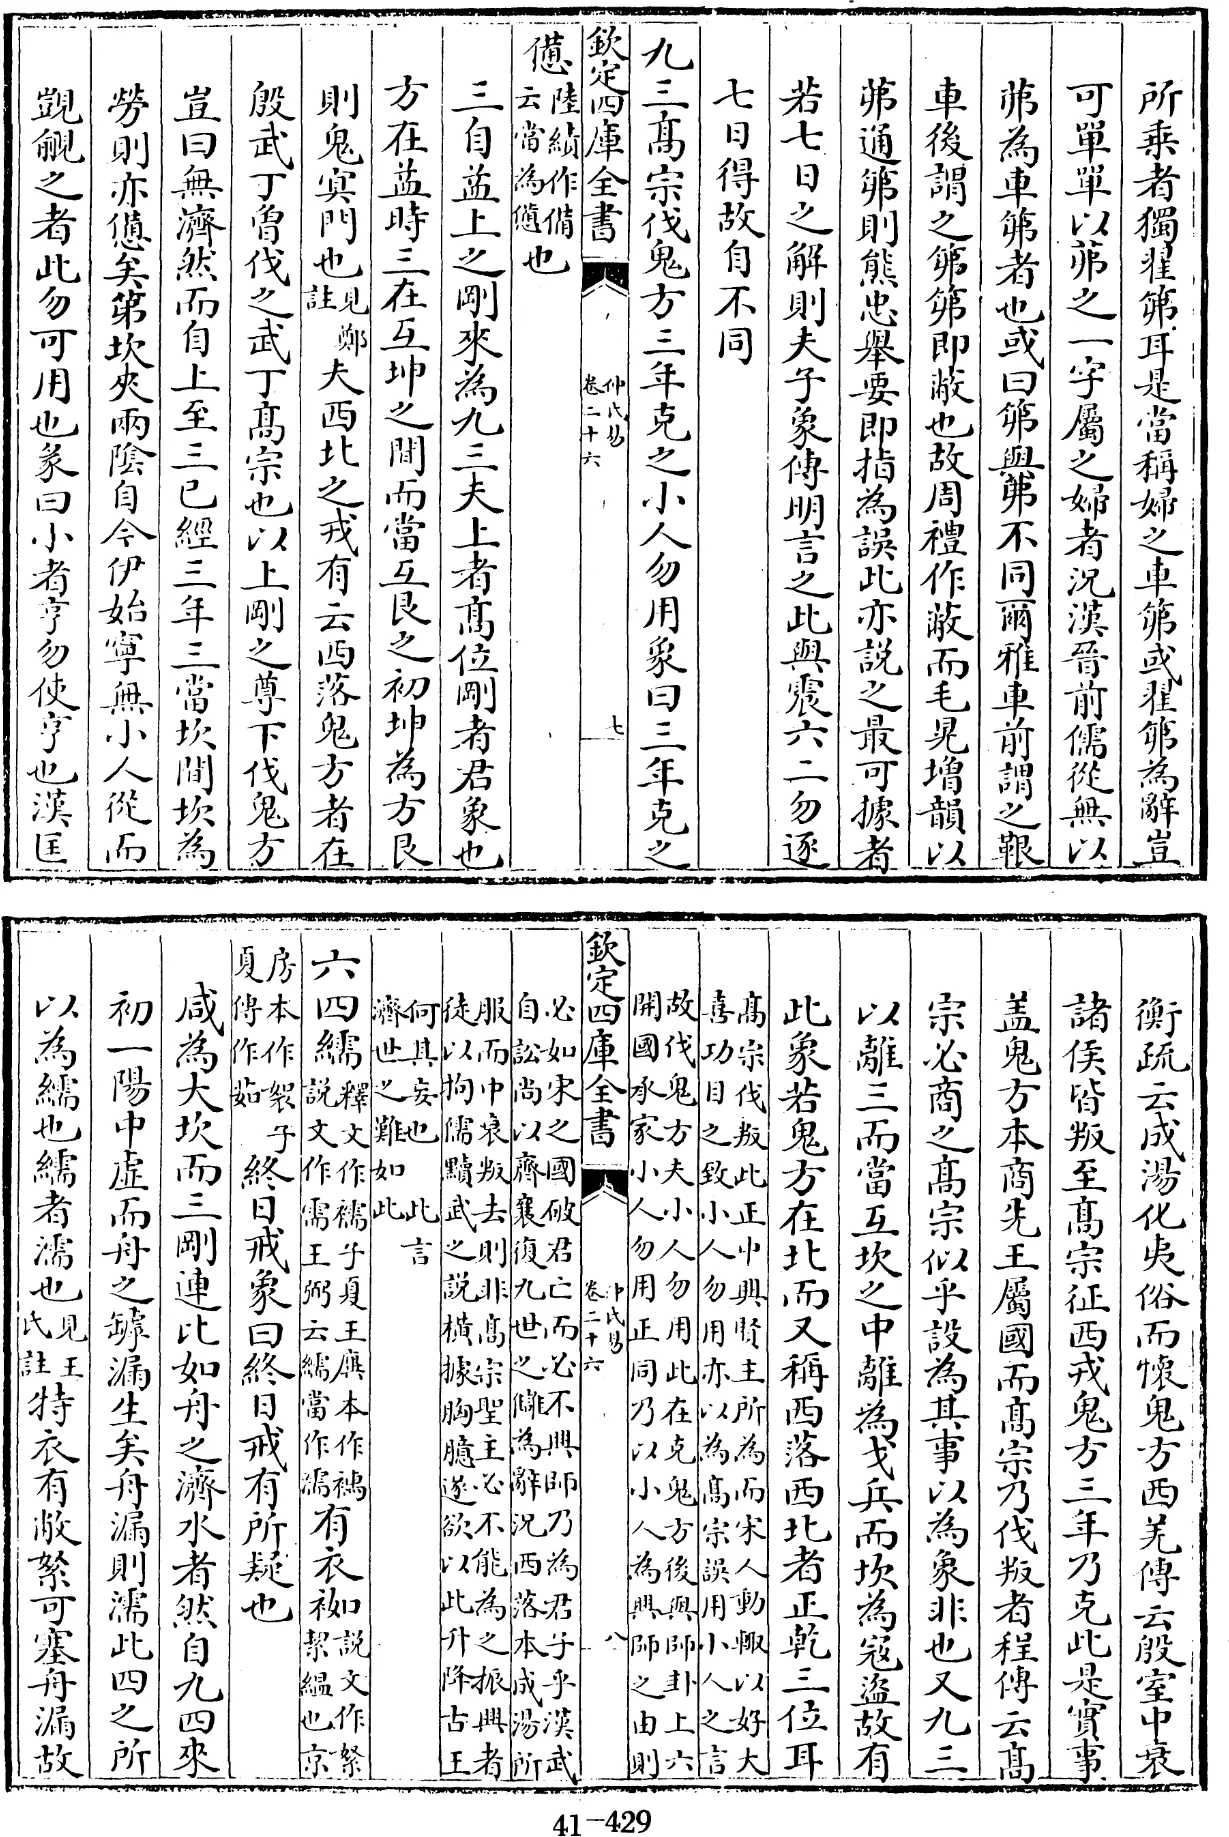 所乘者獨翟茀耳是當稱婦之車茀或翟茀為辭豈
可單單以茀之一字屬之婦者況漢晉前儒從無以
茀為車茀者也或曰茀與茀不同爾雅車前謂之鞎
車後謂之茀茀即蔽也故周禮作蔽而毛晃增韻以
茀通茀則熊忠舉要即指為誤此亦說之最可據者
若七日之解則夫子象傳明言之此與震六二勿逐
七日得故自不同
九三高宗伐鬼方三年克之小人勿用象曰三年克之
欽定四庫全書
仲氏易
卷二十六
七
憊陸績作備云當為憊也
三自益上之剛來為九三夫上者高位剛者君象也
方在益時三在互坤之間而當互艮之初坤為方艮
則鬼冥門也見鄭註夫西北之戎有云西落鬼方者在
殷武丁曾伐之武丁高宗也以上剛之尊下伐鬼方
豈曰無濟然而自上至三已經三年三當坎間坎為
勞則亦憊矣第坎夾兩陰自今伊始寧無小人從而
覬覦之者此勿可用也彖曰小者亨勿使亨也漢匡
衡疏云成湯化夷俗而懷鬼方西羌傳云殷室中衰
諸侯皆叛至高宗征西戎鬼方三年乃克此是實事
盖鬼方本商先王屬國而高宗乃伐叛者程傳云高
宗必商之高宗似乎設為其事以為象非也又九三
以離三而當互坎之中離為戈兵而坎為寇盜故有
此象若鬼方在北而又稱西落西北者正乾三位耳
高宗伐叛此正中興賢主所為而宋人動輒以好大
喜功目之致小人勿用亦以為高宗誤用小人之言
故伐鬼方夫小人勿用此在克鬼方後與師卦上六
開國承家小人勿用正同乃以小人為興師之由則
欽定四庫全書
仲氏易
卷二十六
八
必如宋之國破君亡而必不興師乃為君子乎漢武
自訟尚以齊襄復九世之讎為辭況西落本成湯所
服而中衰叛去則非高宗聖主必不能為之振興者
徒以拘儒黷武之說橫據胸臆遂欲以此升降古王
何其妄也此言
濟世之難如此
六四繻釋文作襦子夏王廙本作襦說文作𦈡王弼云繻當作濡有衣袽說文作絮絮縕也京
房本作絮子夏傳作茹終日戒象曰終日戒有所疑也
咸為大坎而三剛連比如舟之濟水者然自九四來
初一陽中虛而舟之罅漏生矣舟漏則濡此四之所
以為繻也繻者濡也見王氏註特衣有敝絮可塞舟漏故
41-429